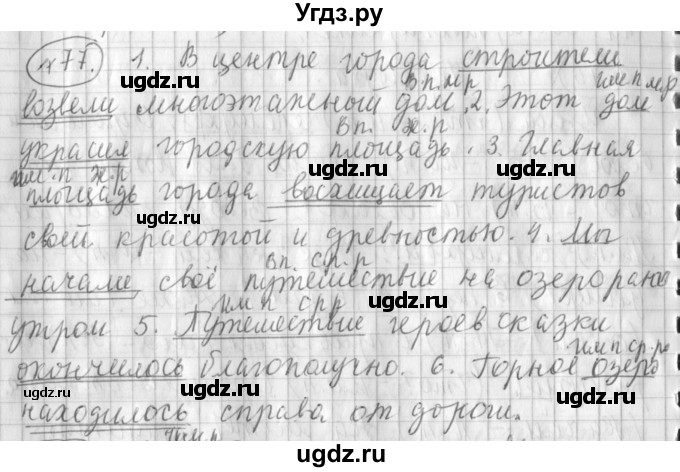 Угдз.ру
№77. 1. В центре города строители
Вп. м.р им п м.р
возвели многоэтажный дом. 2. Этот дом
Вп. ж.р
украсил городскую площадь. 3. Главная
им. п ж.р
площадь города восхищает туристов
своей красотой и древностью. 4. Мы
Вп. ср.р
начали своё путешествие на озеро рано
им п ср р
утром 5. Путешествие героев сказки
им п ср.р
окончилось благополучно. 6. Горное озеро
находилось справа от дороги.
ugdz.ru ugdz.ru
ugdz.ru ugdz.ru
ugdz.ru ugdz.ru
ugdz.ru ugdz.ru
ugdz.ru ugdz.ru